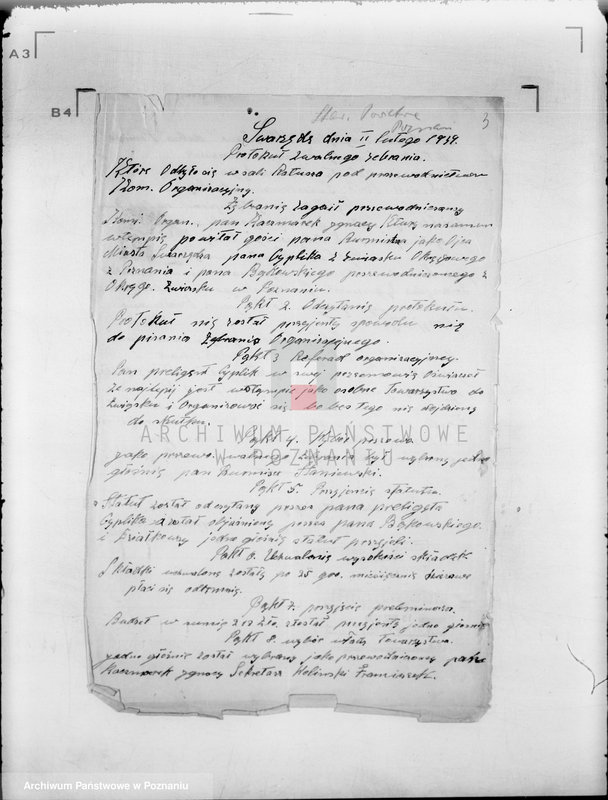 A3
B4
3
Poznań
Swarzędz dnia II lutego 1939.
Protokuł Walnego Zebrania.
Które Odbyło się w sali Ratusza pod przewodnictwem
Kom. Organizacyjny.
Zebranie Zagaił przewodniczący
Kom. Organ. pan Kaczmarek Ignacy
wstempie powitał gości pana Burmistrza jako Ojca
Miasta Swarzędza pana Cyplika z Związku Okręgowego
z Poznania i pana Bąkowskiego przewodniczącego z
Okręgo. Związku w Poznaniu.
Pąkt 2. Odczytanie protokułu.
Protokuł nie został przyjenty spowodu nie
do pisania Zebrania Organizacyjnego.
Pąkt 3 Referad organizacyjny.
Pan preligent Cyplik w swej przemowie Oświadczeł
że najlepij jest wstąmpić jako osobne Towarzystwo do
Związku i Organizować się bo bez tego nie dojdziemy
do skutku.
ARCHIWUM PAŃSTWOWE
W POZNANIU
Pąkt 4. Wybór
jako przewo. Walnego Zebrania był wybrany jedno
głośnie pan Burmistrz Staniewski.
Pąkt 5. Przyjencie statutu.
Statut został odczytany przez pana preligęta
Cyplika został objaśniony przez pana Bąkowskiego.
i jedno głośnie statut przyjeli.
Pąkt 6. Uchwalenie wysokości składek
Składki uchwalone zostały po 25 gro. miesięcznie
płaci się odtąmnie.
Pąkt 7. przyjęcie preliminarza.
Budżet w sumie 212 zło. został przyjenty jedno głośnie
Pąkt 8. wybór władz Towarzystwa.
jedno głośnie został wybrany jako przewodniczący pan
Kaczmarek Ignacy Sekretarz Koliński Franciszek.
Archiwum Państwowe w Poznaniu